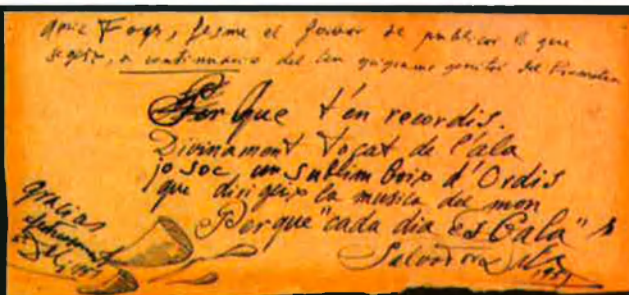 Amic Foix, fesme el favor de publicar el que
segeix, a continuacio del teu
Per que t'en recordis.
Divinament tocat de l'ala
jo soc un sublim boix d'Ordis
que dirigeix la musica del mon
Perque "cada dia es Gala"
Salvador Dalí
gracias